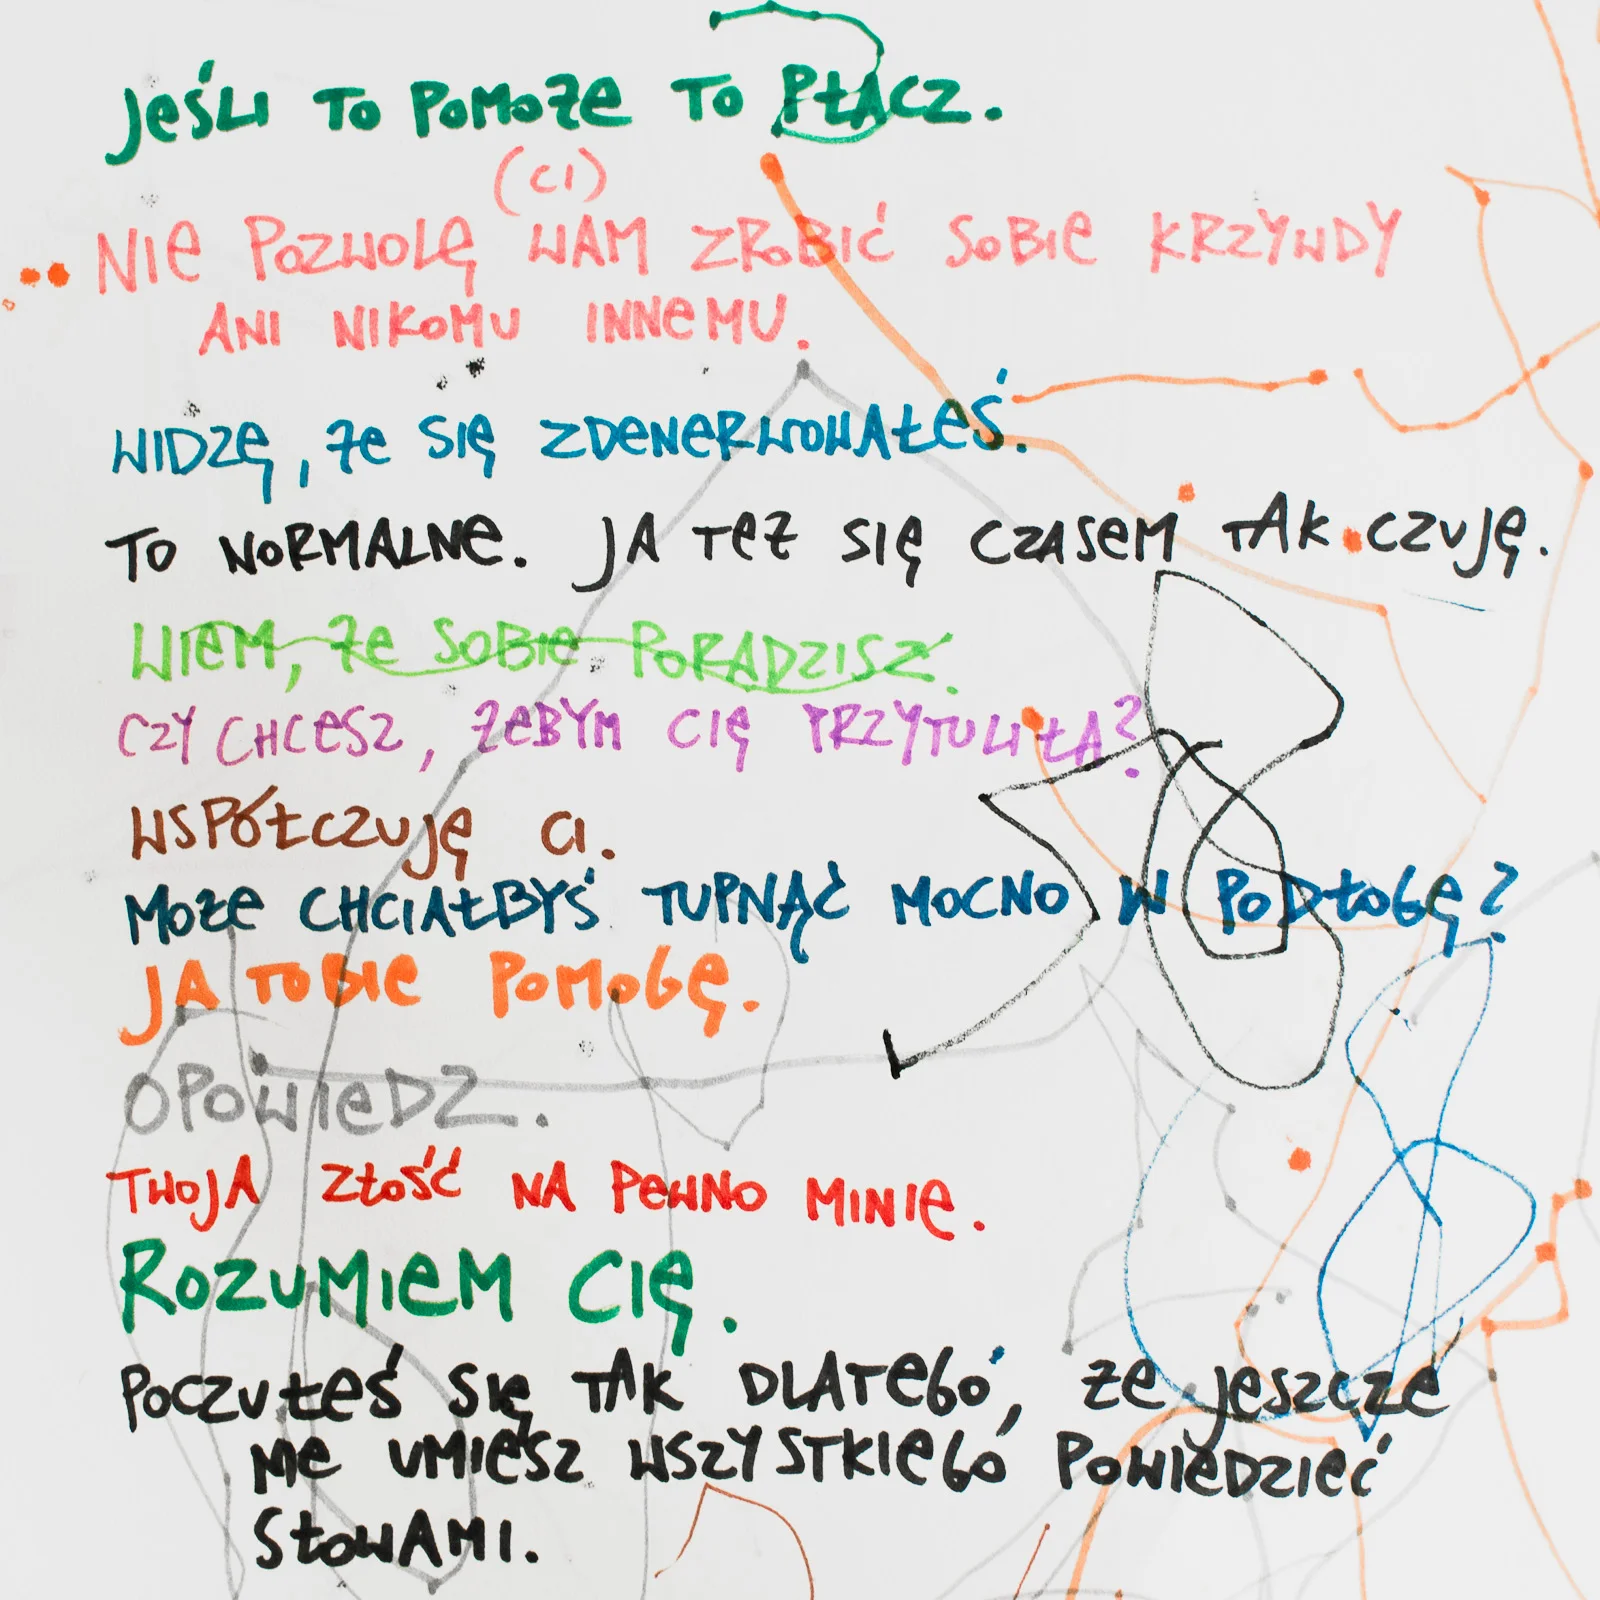 JEŚLI TO POMOŻE TO PŁACZ.
(CI)
NIE POZWOLĘ WAM ZROBIĆ SOBIE KRZYWDY
ANI NIKOMU INNEMU.
WIDZĘ, ŻE SIĘ ZDENERWOWAŁEŚ.
TO NORMALNE. JA TEŻ SIĘ CZASEM TAK CZUJĘ.
WIEM, ŻE SOBIE PORADZISZ.
CZY CHCESZ, ŻEBYM CIĘ PRZYTULIŁA?
WSPÓŁCZUJĘ CI.
MOŻE CHCIAŁBYŚ TUPNĄĆ MOCNO W PODŁOGĘ?
JA TOBIE POMOGĘ.
OPOWIEDZ.
TWOJA ZŁOŚĆ NA PEWNO MINIE.
ROZUMIEM CIĘ.
POCZUŁEŚ SIĘ TAK DLATEGO, ŻE JESZCZE
NIE UMIESZ WSZYSTKIEGO POWIEDZIEĆ
SŁOWAMI.